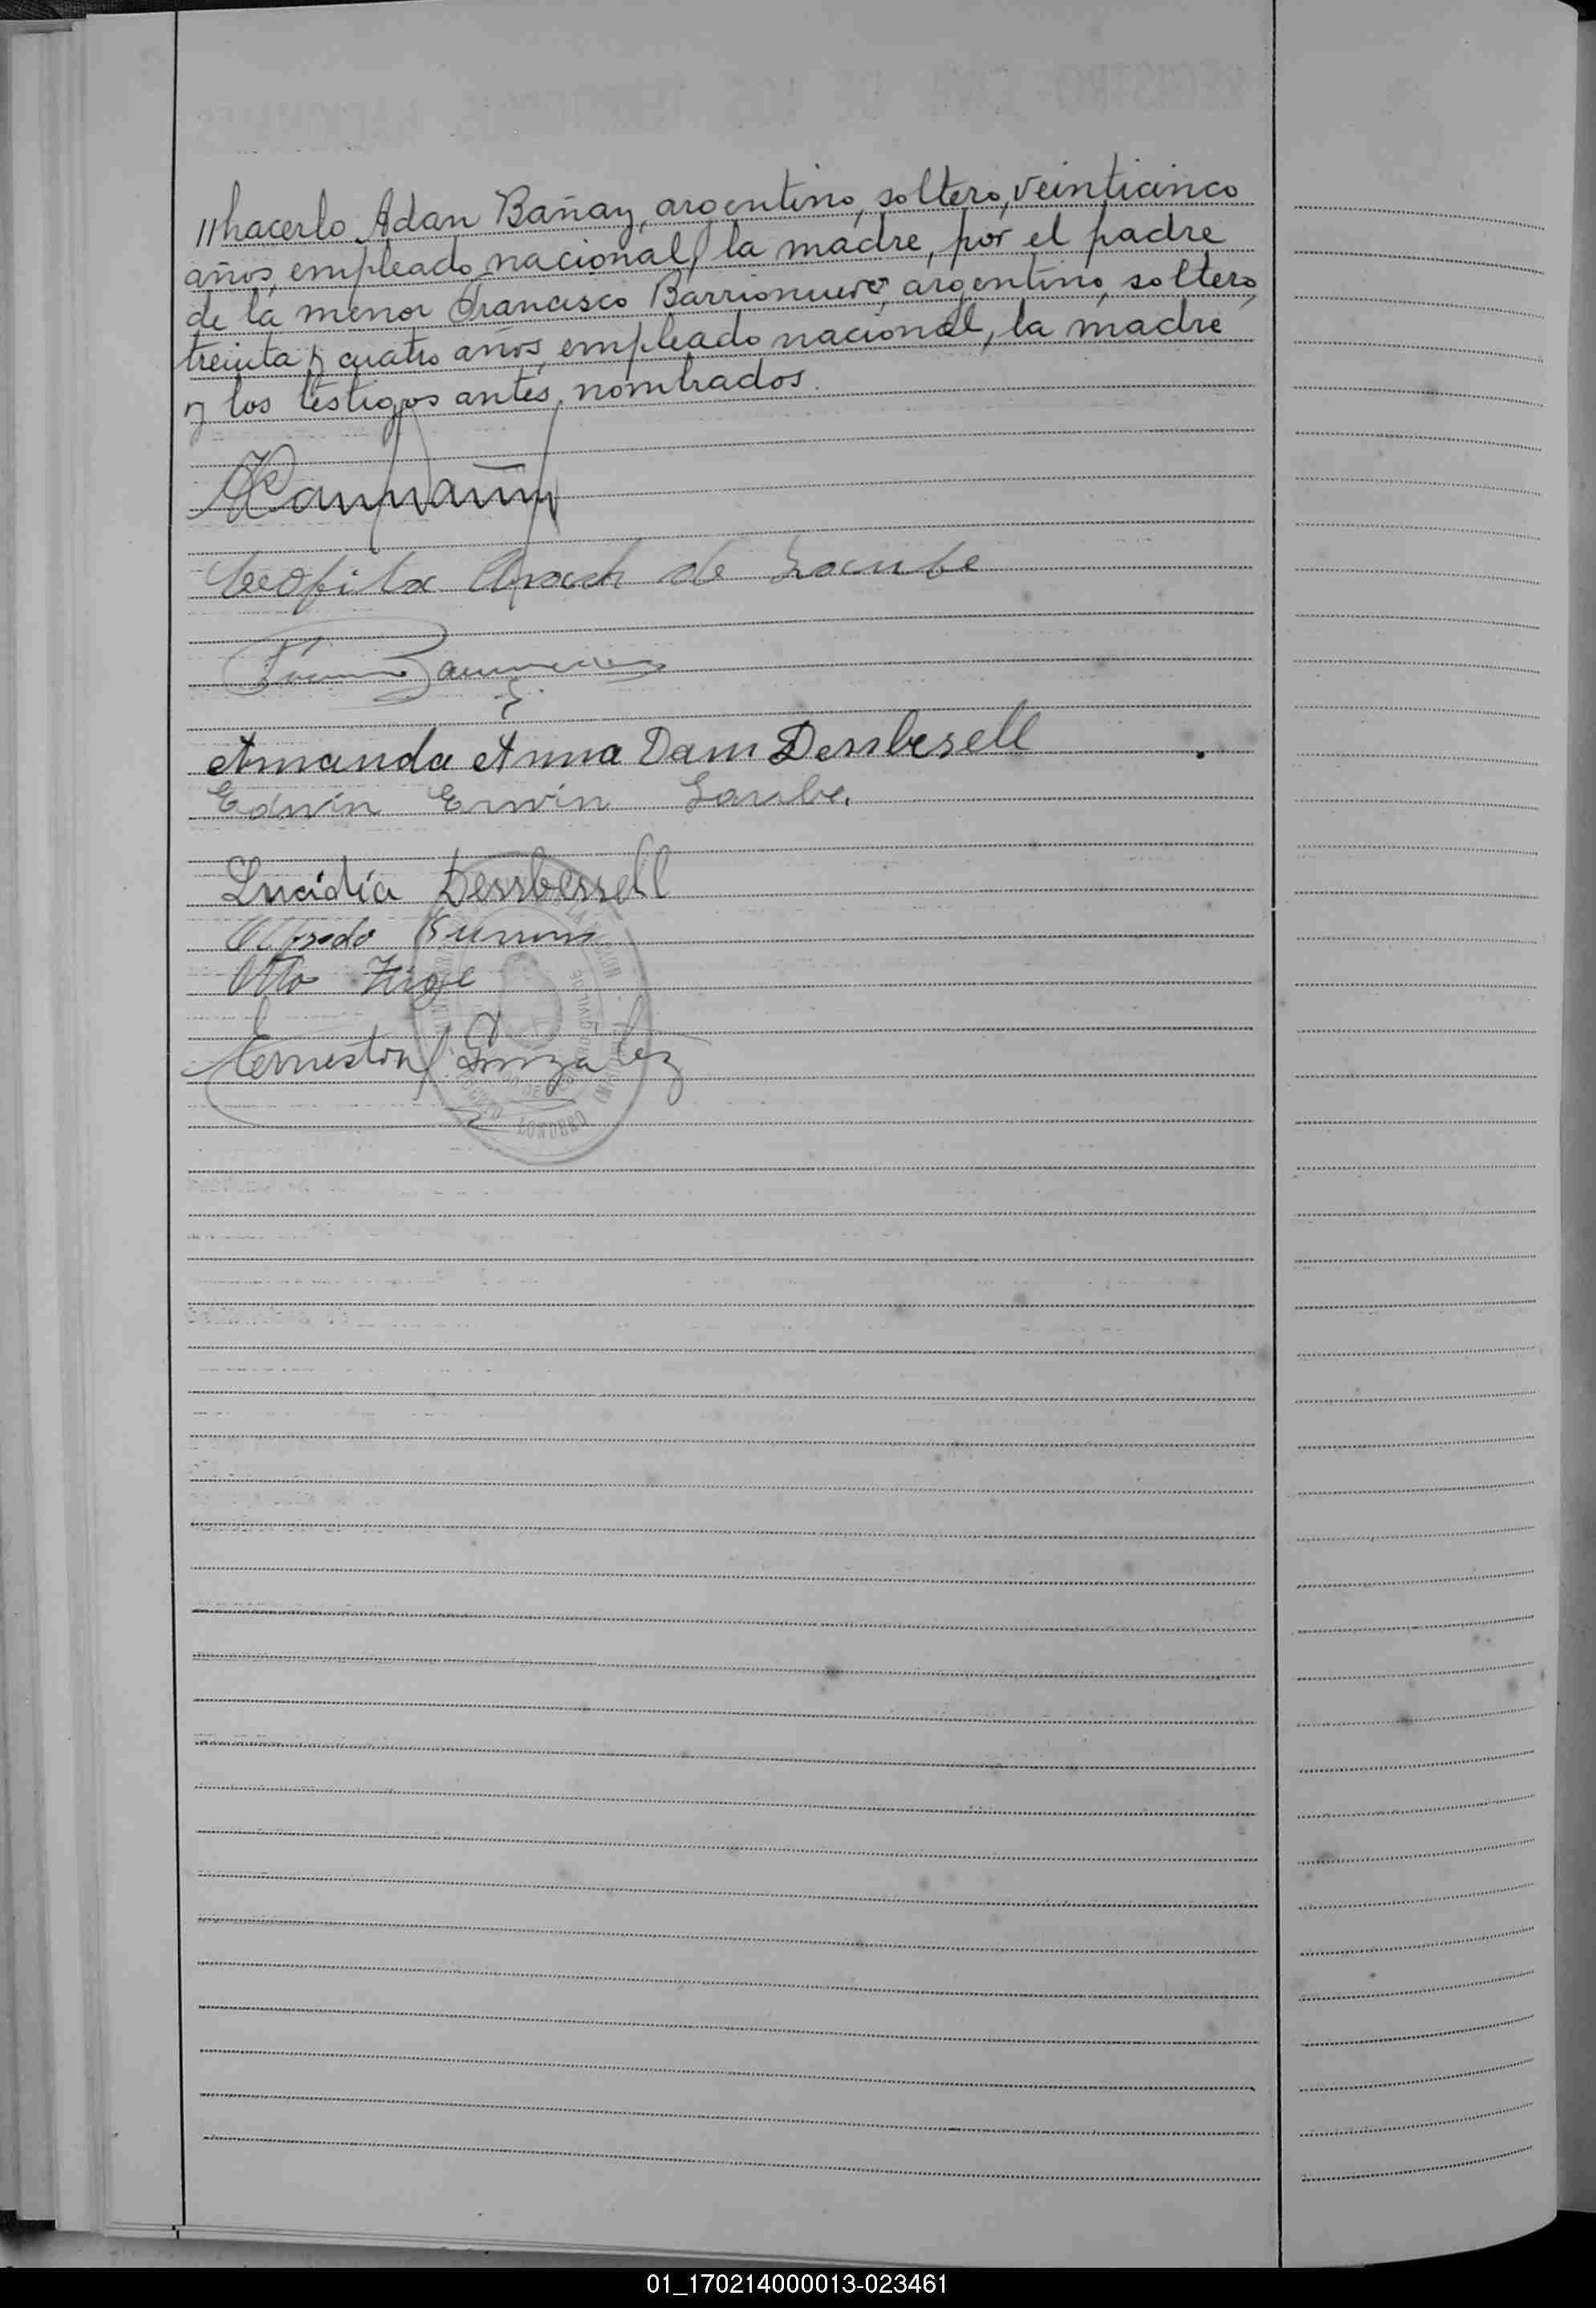 //hacerlo Adan Bañay, argentino, soltero, veinticinco
años, empleado nacional, la madre, por el padre
de la menor Francisco Barrionuevo, argentino, soltero
treinta y cuatro años, empleado nacional, la madre
y los testigos antes nombrados.
de Laube
Amanda Anna Dam Dessbesell
Edwin Erwin Laube.
Lucidia Dessbessell
Alfredo
Otto
Ernesto González
01_170214000013-023461